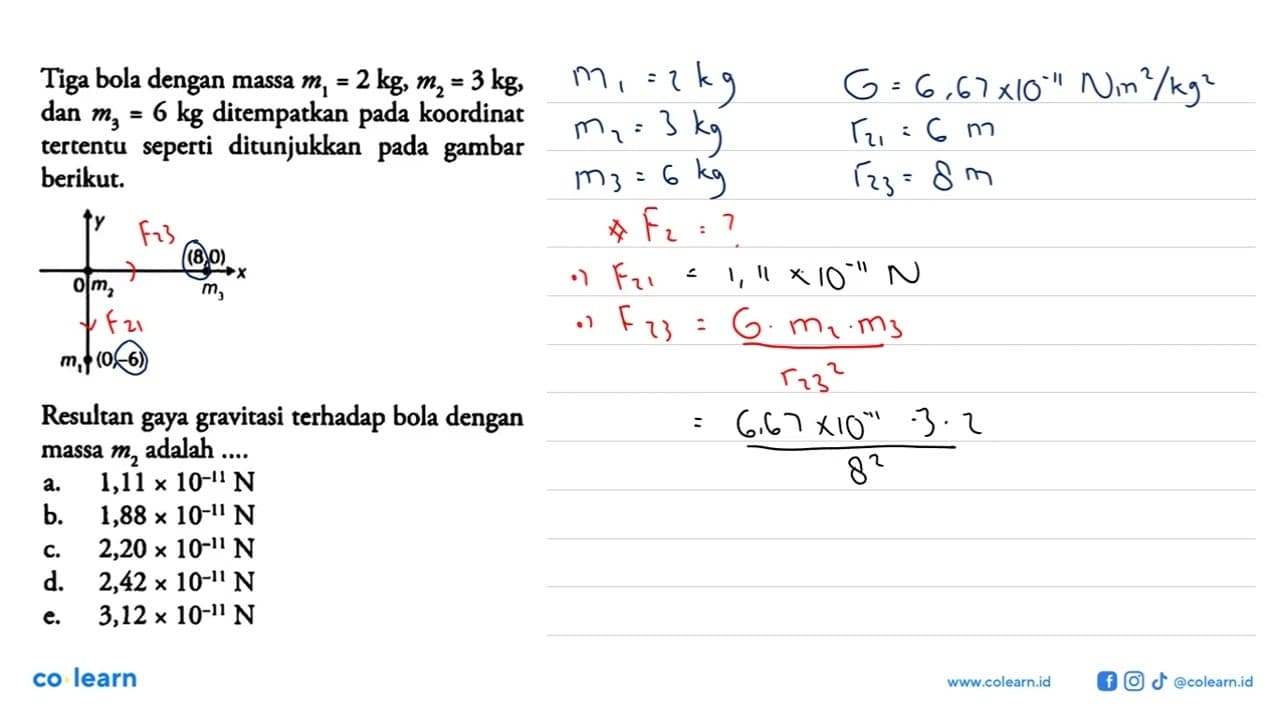 Tiga bola dengan massa m₁ = 2 kg, m₂ = 3 kg,
dan m₃ = 6 kg ditempatkan pada koordinat
tertentu seperti ditunjukkan pada gambar
berikut.
y
F₂₃
(8,0)
x
0 m₂
m₃
F₂₁
m₁ (0,–6)
Resultan gaya gravitasi terhadap bola dengan
massa m₂ adalah ....
a. 1,11 × 10⁻¹¹ N
b. 1,88 × 10⁻¹¹ N
c. 2,20 × 10⁻¹¹ N
d. 2,42 × 10⁻¹¹ N
e. 3,12 × 10⁻¹¹ N
m₁ = 2 kg
m₂ = 3 kg
m₃ = 6 kg
G = 6,67 × 10⁻¹¹ Nm²/kg²
r₂₁ = 6 m
r₂₃ = 8 m
* F₂ = ?
•) F₂₁ = 1,11 × 10⁻¹¹ N
•) F₂₃ = G. m₂ . m₃
r₂₃²
= 6,67 × 10⁻¹¹ . 3 . 2
8²
co learn
www.colearn.id
@colearn.id